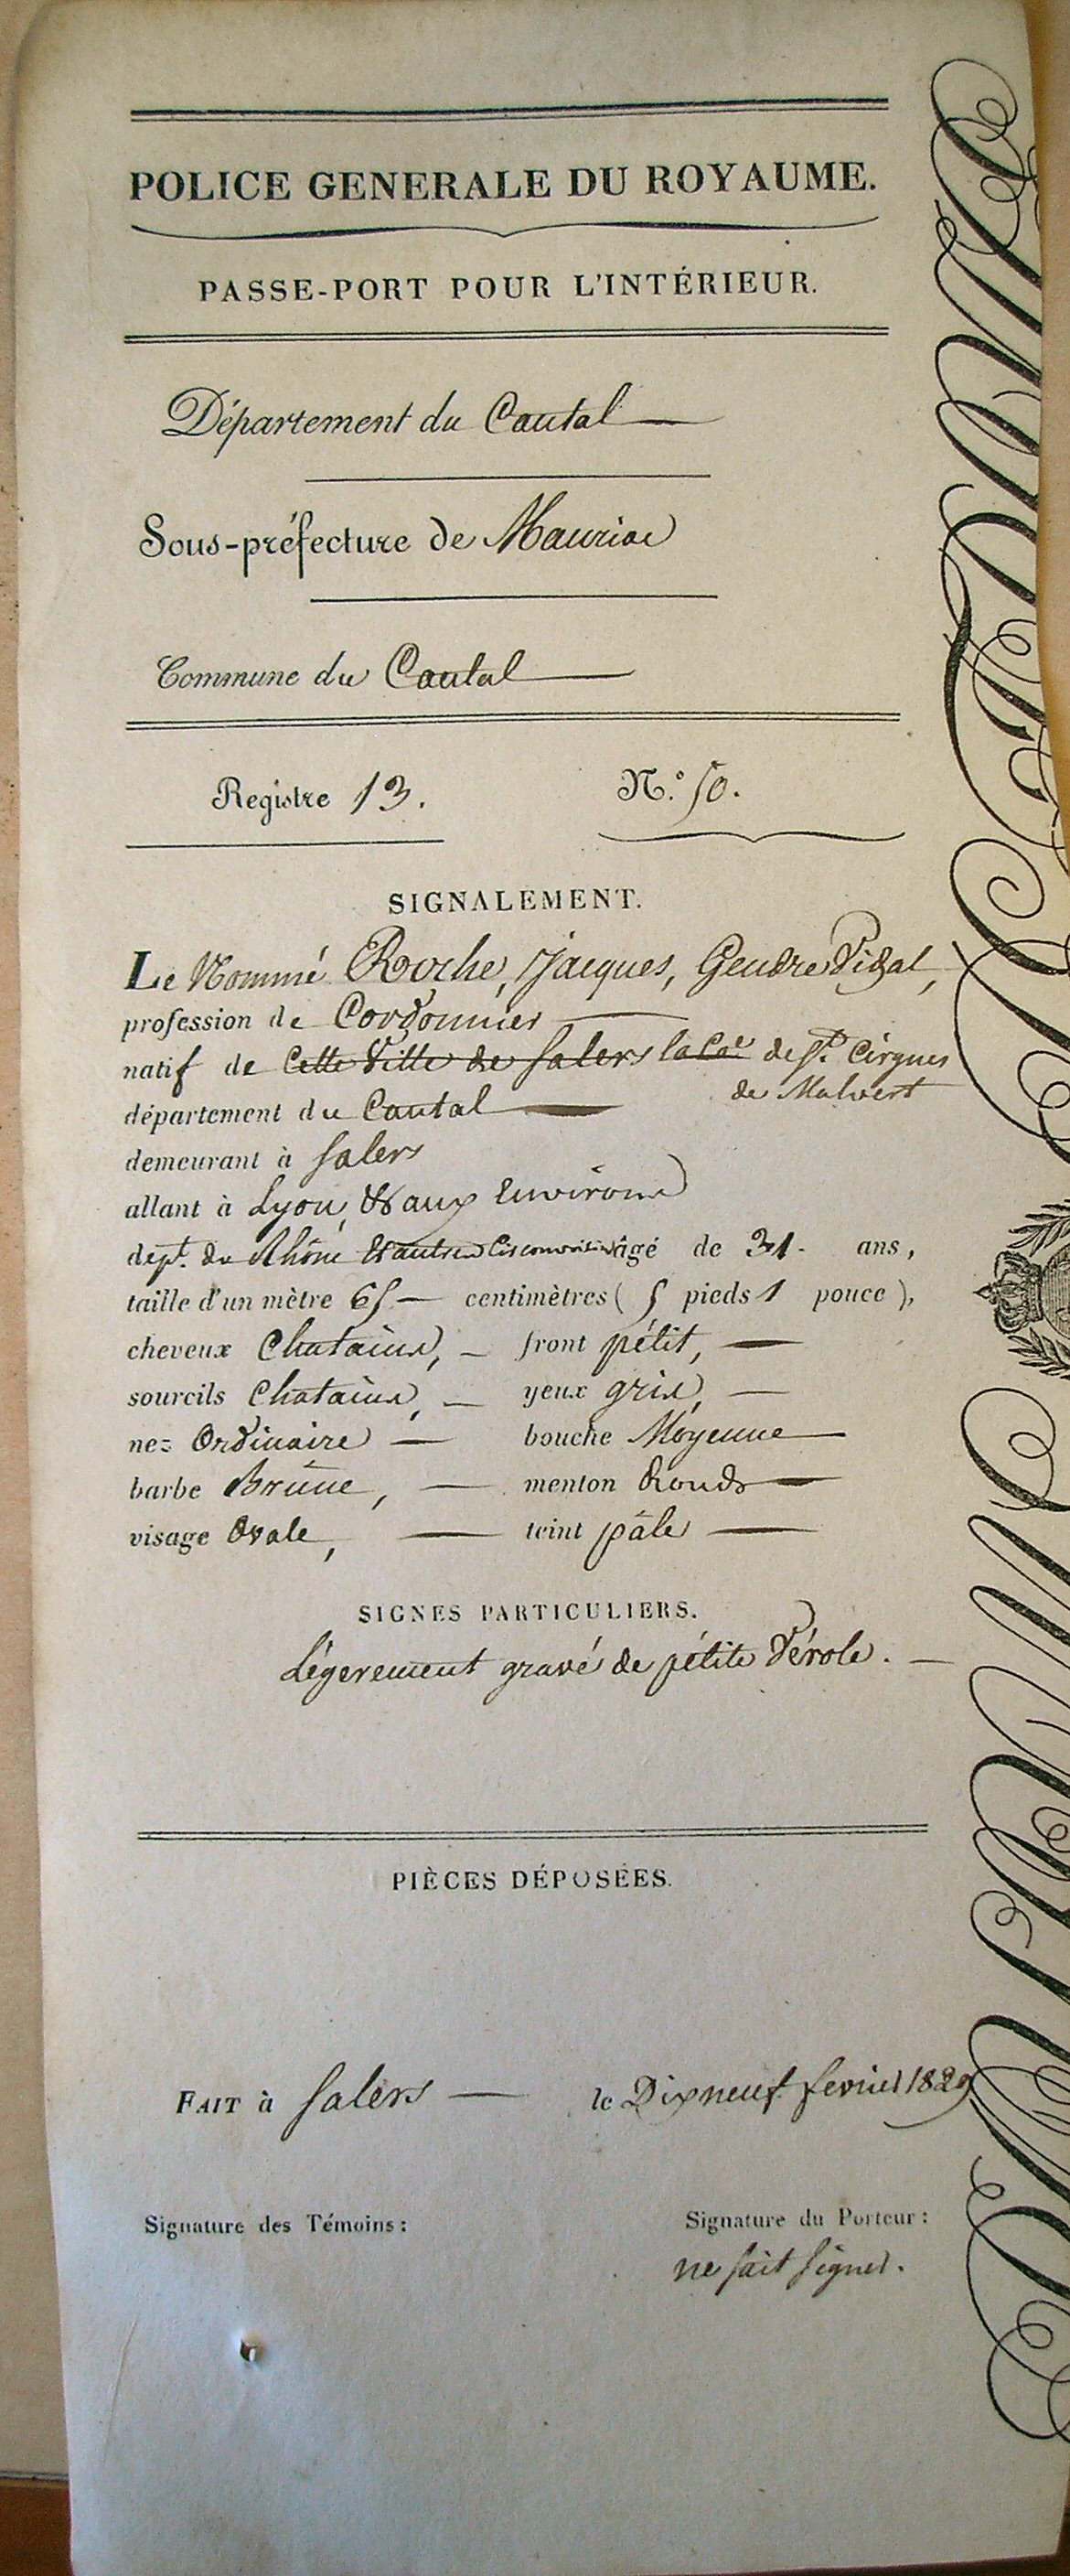 POLICE GENERALE DU ROYAUME.
PASSE-PORT POUR L'INTÉRIEUR.
Département du Cantal
Sous-préfecture de Mauriac
Commune du Cantal
Registre 13. N.º 50.
SIGNALEMENT.
Le Nommé Roche, Jacques, Gendre Vidal,
profession de Cordonnier
natif de Cette Ville de Salers la Cne de St. Cirgues
de Malvert
département du Cantal
demeurant à Salers
allant à Lyon, & aux Environs
dept. du Rhône & autres Circonvoisins âgé de 31. ans,
taille d'un mètre 65 centimètres ( 5 pieds 1 pouce ),
cheveux Chatains, front pétit,
sourcils Chatains, yeux gris,
nez Ordinaire bouche Moyenne
barbe Brune, menton Rond
visage Ovale, teint pâle
SIGNES PARTICULIERS.
Légerement gravé de pétite Vérole.
PIÈCES DÉPOSÉES.
FAIT à Salers le Dix neuf fevrier 1829
Signature des Témoins: Signature du Porteur:
ne sait signer.